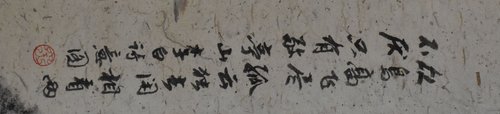 众鸟高飞尽孤云独去闲相看两
不厌只有敬亭山李白诗意图